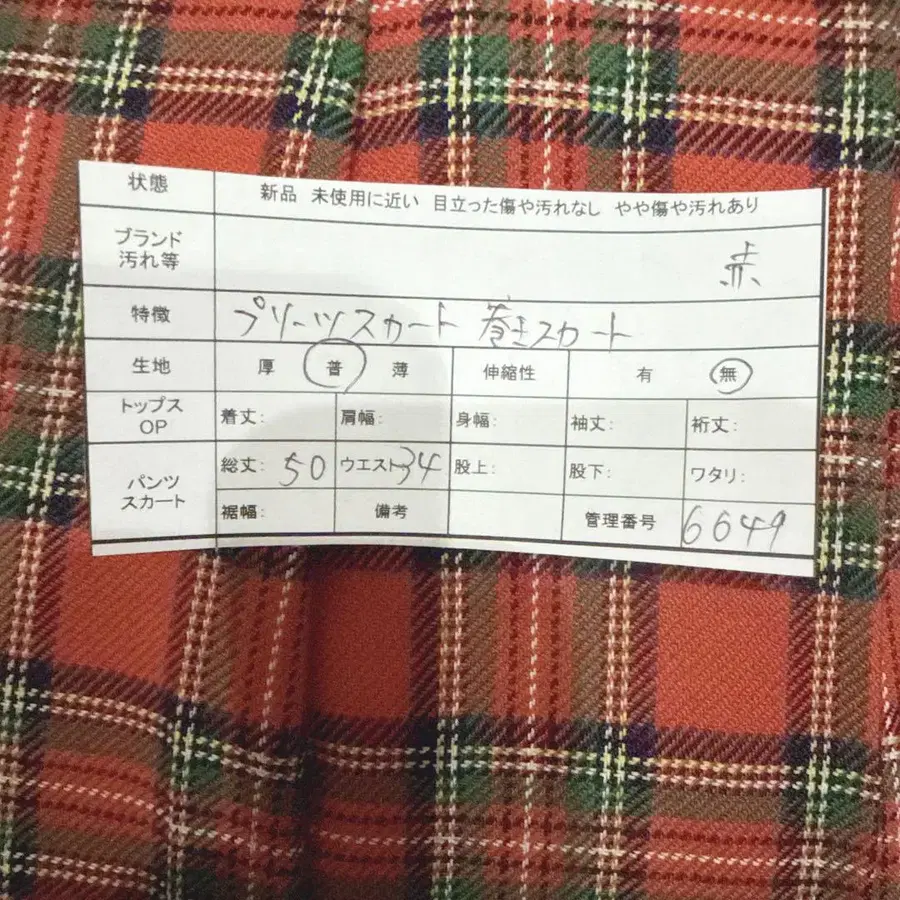 状態 新品 未使用に近い 目立った傷や汚れなし やや傷や汚れあり
ブランド
汚れ等 赤
特徴 プリーツスカート 巻きスカート
生地 厚 普 薄 伸縮性 有 無
トップス
OP 着丈: 肩幅: 身幅: 袖丈: 裄丈:
パンツ
スカート 総丈: 50 ウエスト 34 股上: 股下: ワタリ:
裾幅: 備考 管理番号 6649